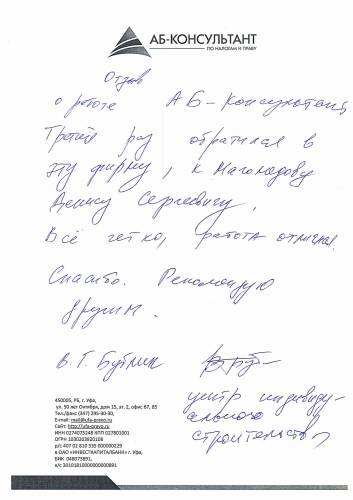 АБ-КОНСУЛЬТАНТ
ПО НАЛОГАМ И ПРАВУ
Отзыв
о работе АБ-Консультант
Третий раз обратился в
эту фирму, к
Денису Сергеевичу.
Всё четко, работа отличная.
Спасибо. Рекомендую
другим.
В. Г.
центр индивиду-
ального
строительства
450005, РБ, г. Уфа,
ул. 50 лет Октября, дом 15, эт. 2, офис 67, 65
Тел./факс (347) 295-90-90,
E-mail: mail@ufa-pravo.ru
Сайт: http://ufa-pravo.ru
ИНН 0274075248 КПП 027801001
ОГРН 1030203920108
р/с 407 02 810 555 000000229
в ОАО «ИНВЕСТКАПИТАЛБАНК» г. Уфа,
БИК 048073891,
к/с 30101810000000000891